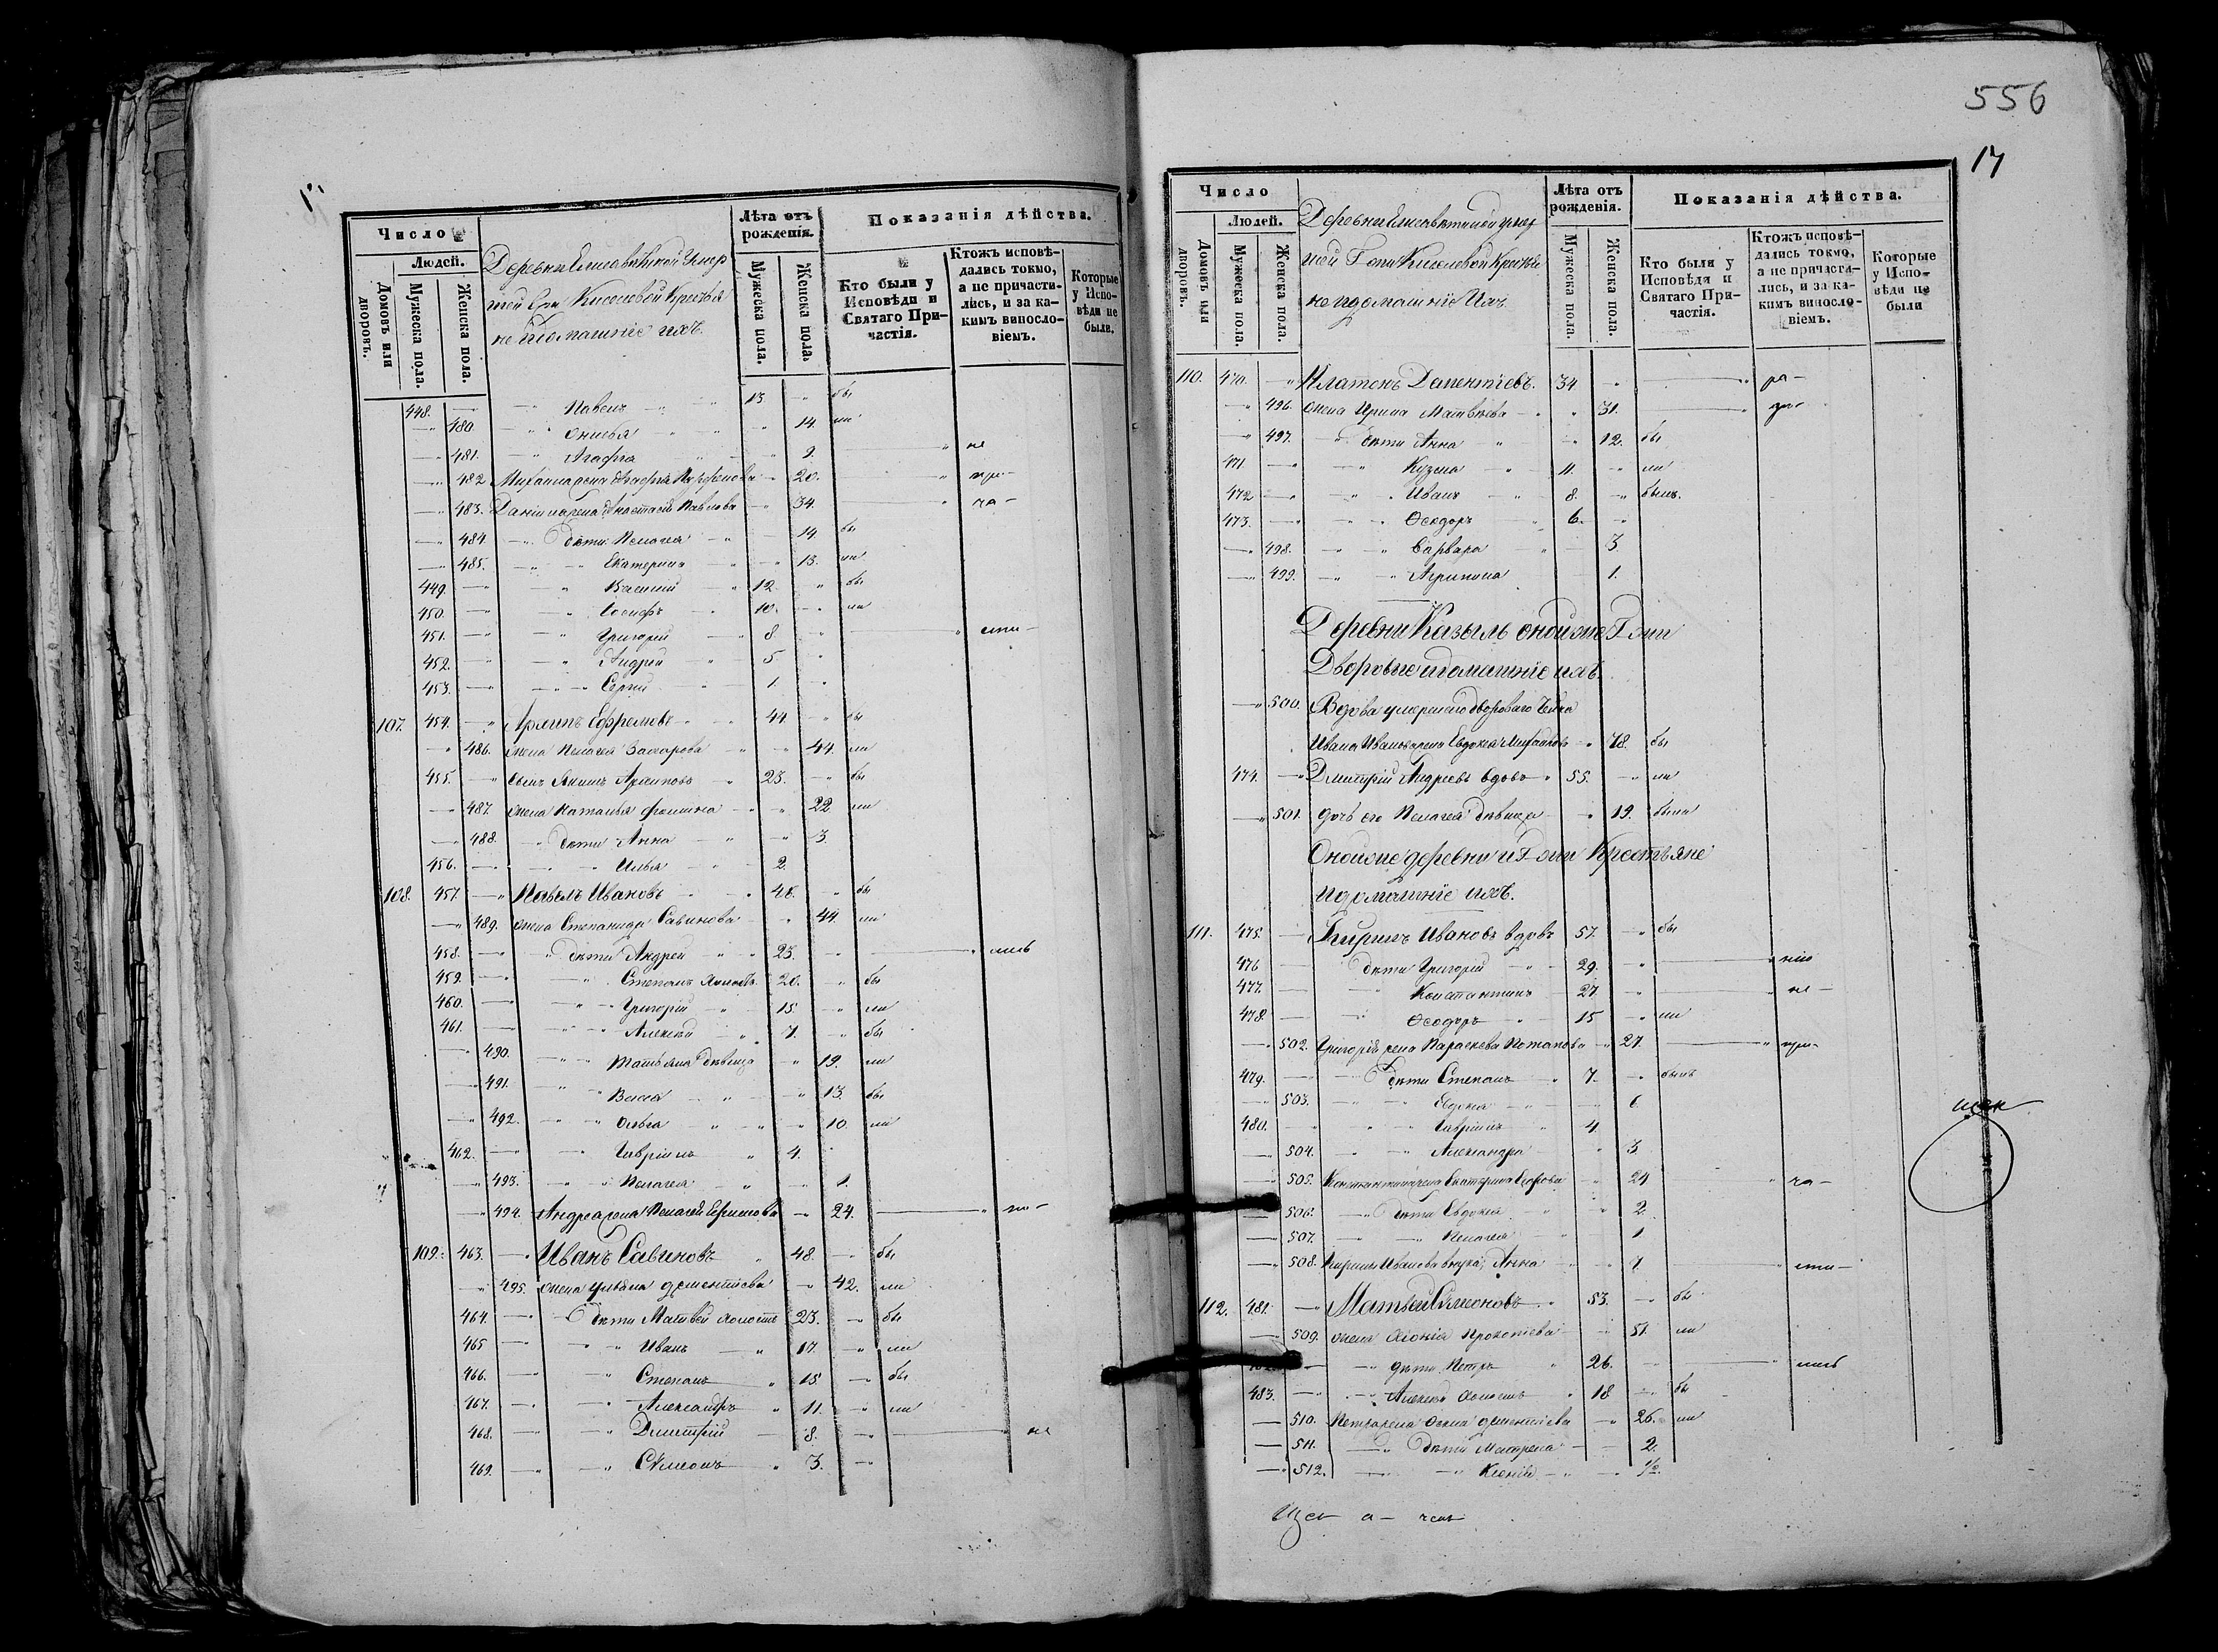 Число
Людей.
Домовъ или дворовъ.
Мужеска пола.
Женска пола.
Деревни Елисаветиной умер
шей Гжи Киселевой Кресть
не и домашніе ихъ.
Лѣта отъ рожденія.
Мужеска пола.
Женска пола.
Показанія дѣйства.
Кто были у Исповѣди и Святаго При-частія.
Ктожъ исповѣ-дались токмо, а не причасти-лись, и за ка-кимъ винословіемъ.
Которые у Испо-вѣди не были.
448. Павелъ 13. бы
480. 14. ли
481. Агафья 9. не
482 Михаила жена Агафья Парфенова 20. при-
483. Даніила жена Анастасія Павлова 34. ча-
484. дѣти Пелагея 14 бы
485. Екатерина 13. ли
449. Василій 12. бы
450. Іосифъ 10. ли
451. Григорій 8 сти-
452. Андрей 5
453. Сергій 1.
107. 454. Архипъ Ефремовъ 44 бы
486. жена Пелагея Захарова 44. ли
455. сынъ Архиповъ 23. бы
487. жена Наталья Фомина 22 ли
488. дѣти Анна 3.
456. Илья 2.
108. 457. Павелъ Ивановъ 48. бы
489. жена Степанида Савинова 44. ли
458. дѣти Андрей 25. лись
459. Степанъ холостъ 20. бы
460. Григорій 15. ли
461. Алексѣй 7. бы
490. Татьяна дѣвица 19. ли
491. Васса 13. бы
492. Ольга 10. ли
462. Гавріилъ 4.
493. Пелагея 1.
494. Андрея жена Пелагея Ефимова 24. по-
109. 463. Иванъ Савиновъ 48. бы
495. жена Ульяна Дементіева 42. ли
464. дѣти Матвей холостъ 23. бы
465 Иванъ 17. ли
466. Степанъ 15 бы
467. Александръ 11. ли
468. Димитрій 8. не
469. Сѵмеонъ 3.
556
17
Число
Людей.
Домовъ или дворовъ.
Мужеска пола.
Женска пола.
Деревни Елисаветиной умер
шей Гжи Киселевой Крестья
не и домашніе ихъ
Лѣта отъ рожденія.
Мужеска пола.
Женска пола.
Показанія дѣйства.
Кто были у Исповѣди и Святаго При-частія.
Ктожъ исповѣ-дались токмо, а не причаста-лись, и за ка-кимъ винословіемъ.
Которые у Испо-вѣди не были
110. 470. Платонъ Дементіевъ. 34 ра-
496. жена Ирина Матвѣева 31.
497. дѣти Анна 12. бы
471. Кузма 11. ли
472 Иванъ 8. былъ.
473. Ѳеодоръ 6.
498. Варвара 3
499. Агрипина 1.
Деревни Казыль оной же Гжи
Дворовые и домашніе ихъ.
500. Вдова умершаго двороваго Чел-ка
Ивана Иванова жена Евдокія Михайлова 78. бы
474. Димитрій Андреевъ вдовъ 55. ли
501. дочь его Пелагея дѣвица 19. была
Оной же деревни и Гжи Крестьяне
и домашніе ихъ.
111. 475. Кирилъ Ивановъ вдовъ 57. бы
476 дѣти Григорій 29. нію
477. Константинъ 27. не-
478. Ѳеодоръ 15 ли
502. Григорія жена Параскева Потапова 27. при-
479. дѣти Степанъ 7. былъ
503. Евдокія 6
480. Гавріилъ 4.
504. Александра 3.
505. Константина жена Екатерина Егорова 24 ча-
506. дѣти Евдокія 2.
507. Пелагея 1
508. Кирилы Иванова внука, Анна 7 сти-
112. 481. Матвей Сѵмеоновъ 53. бы
509. жена Прокопіева 51. ли
482. дѣти Петръ 26. лись
483. Алексѣй холостъ 18 бы
510. Петра жена Дементіева 26. ли
511. дѣти Матрена 2.
512. Ксенія 1/2.